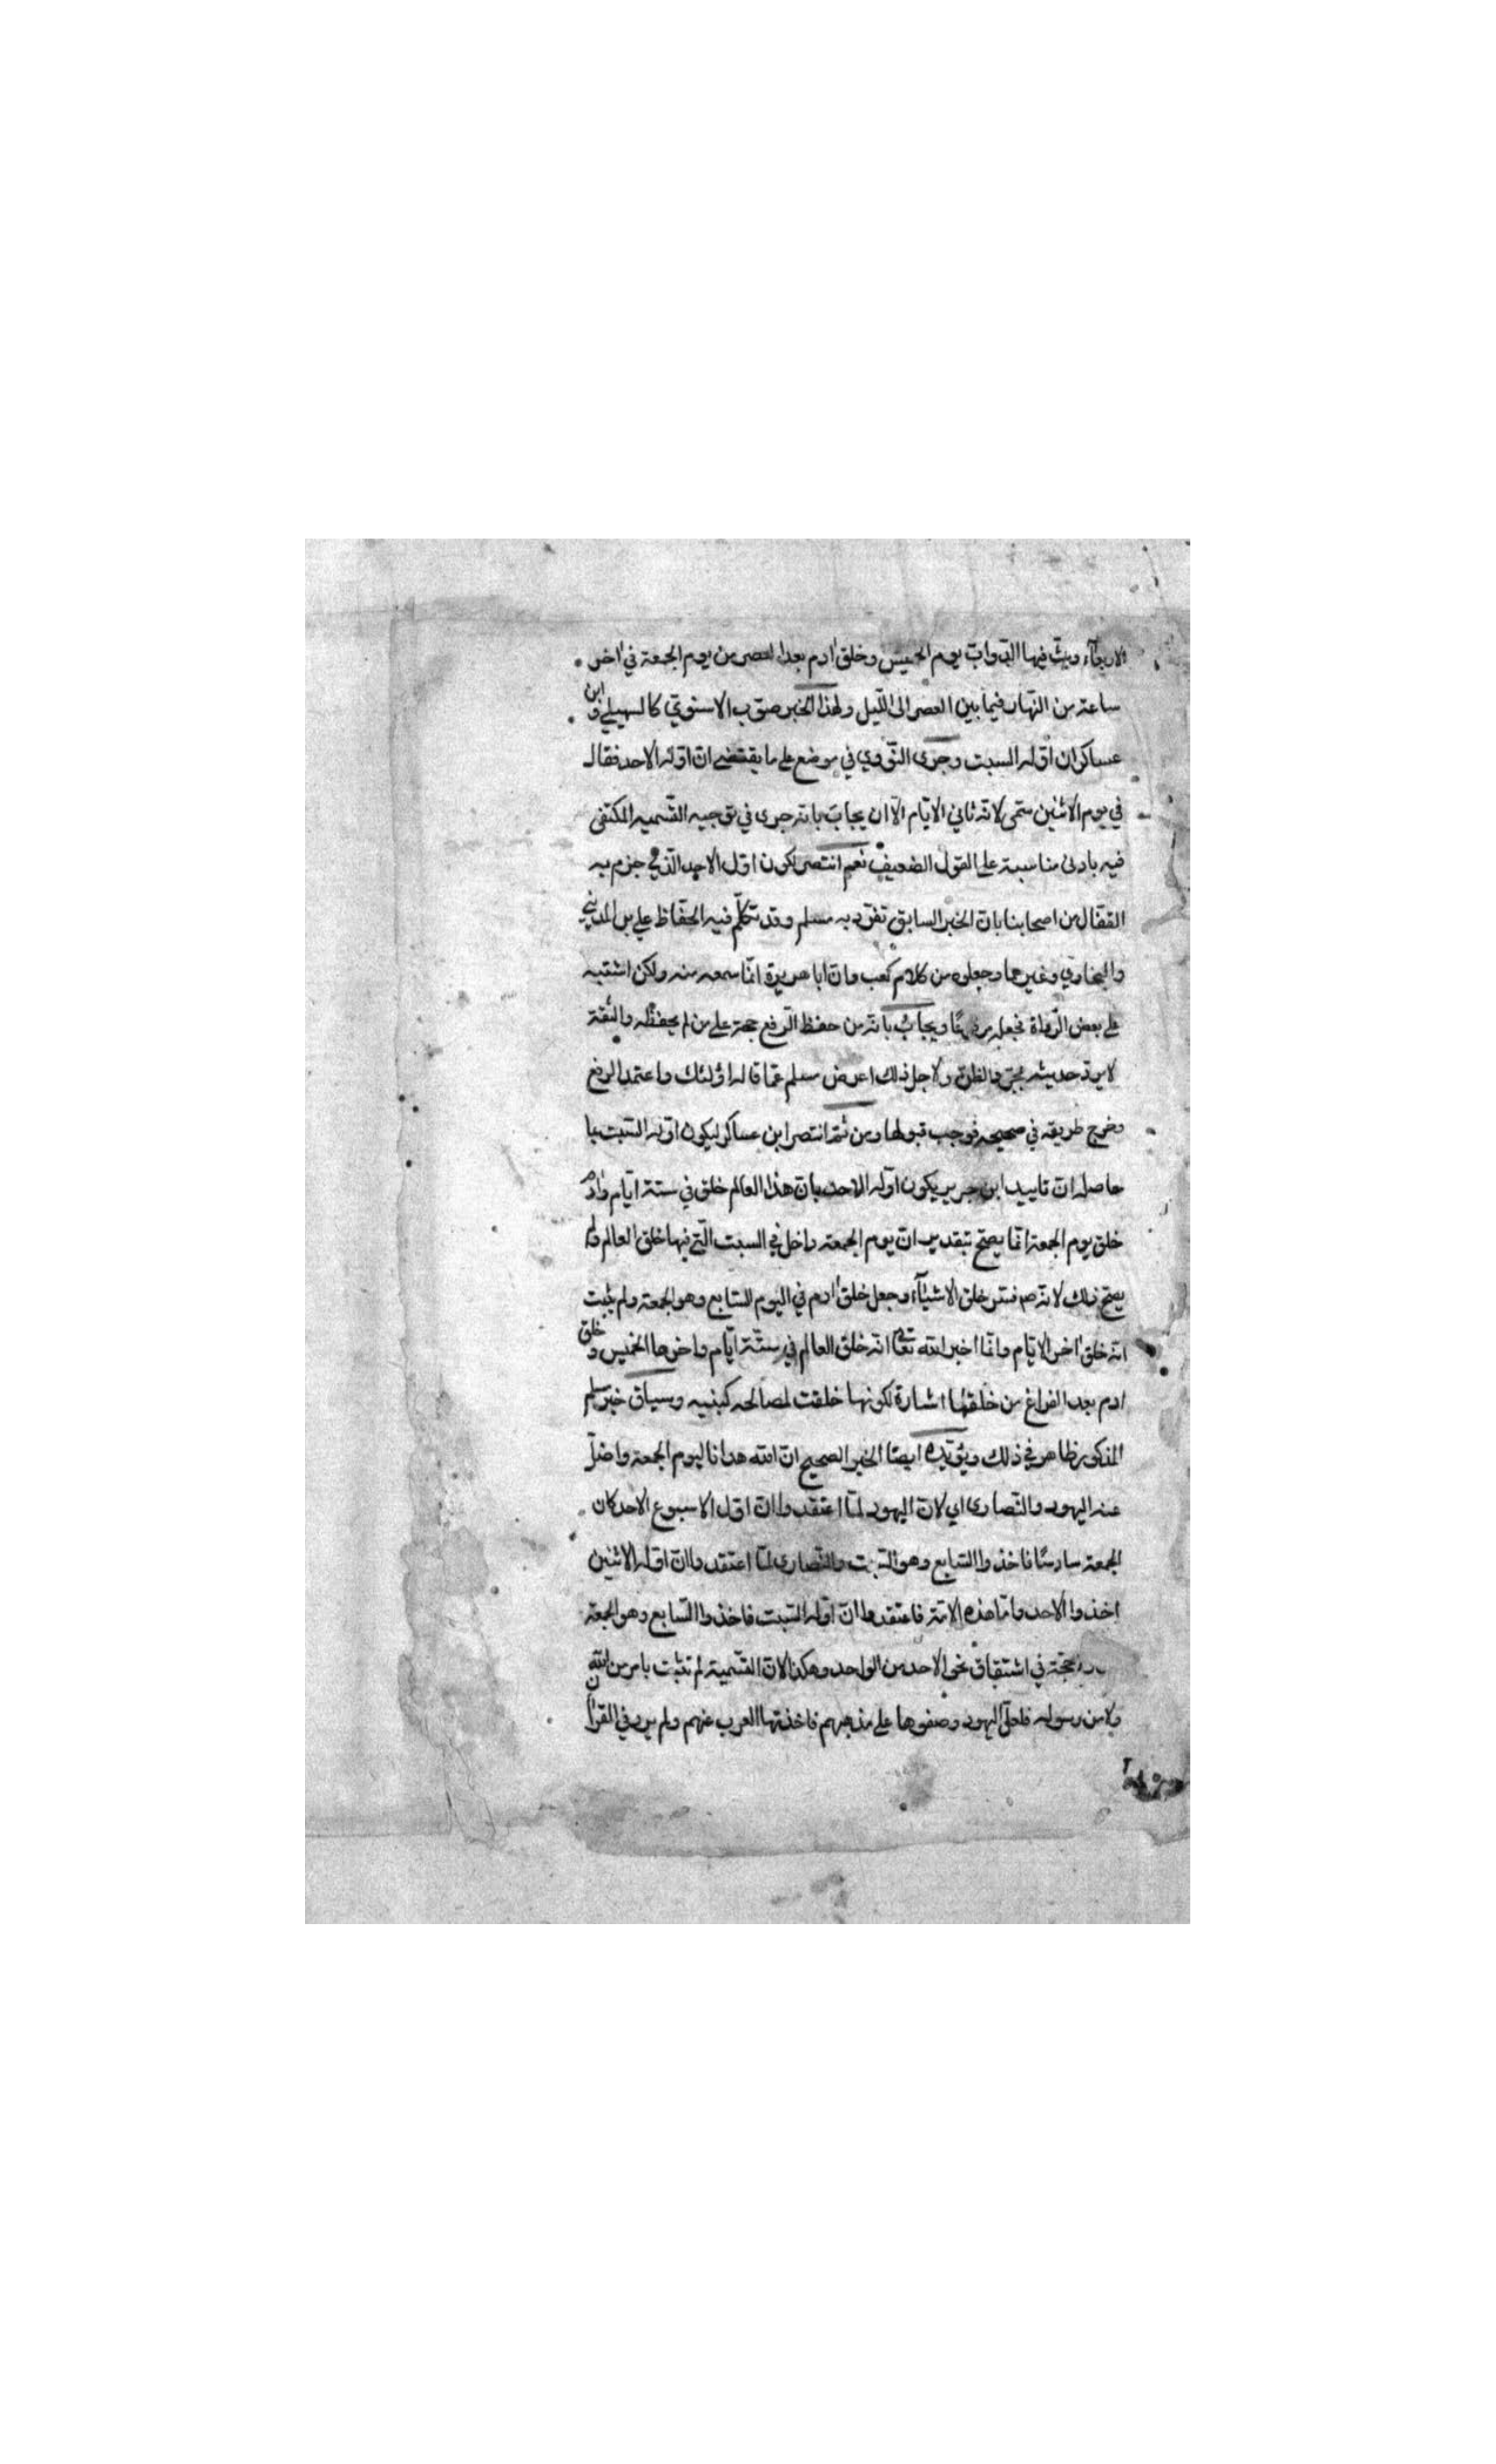 الاربعآء وبثّ فيها الدّوابّ يوم الخميس وخلق ادم بعد العصر من يوم الجمعة في اخر
ساعة من النهار فيما بين العصر الى اللّيل ولهذا الخبر صوّب الاسنويّ كالسهيلي وابن
عساكر ان اوّله السبت وجرى النّووي في موضع على ما يقتضي انّ اوّله الاحد فقال
في يوم الاثنين سمّى لانّه ثاني الايّام الّا ان يجاب بانّه جرى في توجيه التّسميه المكتفى
فيه بادنى مناسبة على القول الضعيف نعم انتصر لكون اوّل الاحد الّذي جزم به
القفّال من اصحابنا بانّ الخبر السابق تفرّد به مسلم وقد تكلّم فيه الحفّاظ علي بن المديني
والبخاري وغيرهما وجعلوه من كلام كعب وانّ ابا هريرة انّما سمعه منه ولكن اشتبه
على بعض الرّواة فجعله مرفوعًا ويجاب بانّه من حفظ الرّفع حجة على من لم يحفظه والثقة
لا يردّ حديثه بمجرّد الظنّ ولاجل ذلك اعرض مسلم عمّا قاله اولئك واعتمد الرفع
وخرج طريقه في صحيحه فوجب قبولها ومن ثمّ انتصر ابن عساكر ليكون اوّله السّبت بما
حاصله انّ تاييد ابن جرير بكون اوّله الاحد بانّ هذا العالم خلق في ستة ايّام وادم
خلق يوم الجمعة انّما يصحّ بتقدير انّ يوم الجمعة داخل في السبت الّتي فيها خلق العالم ولم
يصحّ ذلك لانّه صم فسّر خلق الاشيآء وجعل خلق ادم في اليوم السّابع وهو الجمعة ولم يثبت
انّه خلق اخر الايّام وانّما اخبر الله تعالى انّه خلق العالم في ستّة ايّام واخرها الخميس وخلق
ادم بعد الفراغ من خلقها اشارة لكونها خلقت لمصالحه كبنيه وسياق خبر مسلم
المذكور ظاهر في ذلك ويؤيّده ايضًا الخبر الصحيح انّ الله هدانا ليوم الجمعة واضلّ
عنه اليهود والنّصارى اي لانّ اليهود لمّا اعتقدوا انّ اوّل الاسبوع الاحد كان
الجمعة سادسًا فاخذوا السّابع وهو السّبت والنّصارى لمّا اعتقدوا انّ اوّله الاثنين
اخذوا الاحد وامّا هذه الامّة فاعتقدوا انّ اوّله السّبت فاخذوا السّابع وهو الجمعة
حجّة في اشتقاق نحو الاحد من الواحد وهكذا لانّ التّسمية لم تثبت بامر من الله
ولا من رسوله فلعلّ اليهود وصفوها على مذهبهم فاخذتها العرب عنهم ولم يرد في القرآن